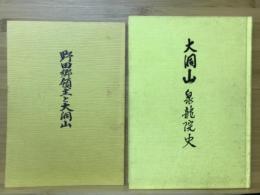 野田郷領主と大洞山
大洞山
泉龍院史